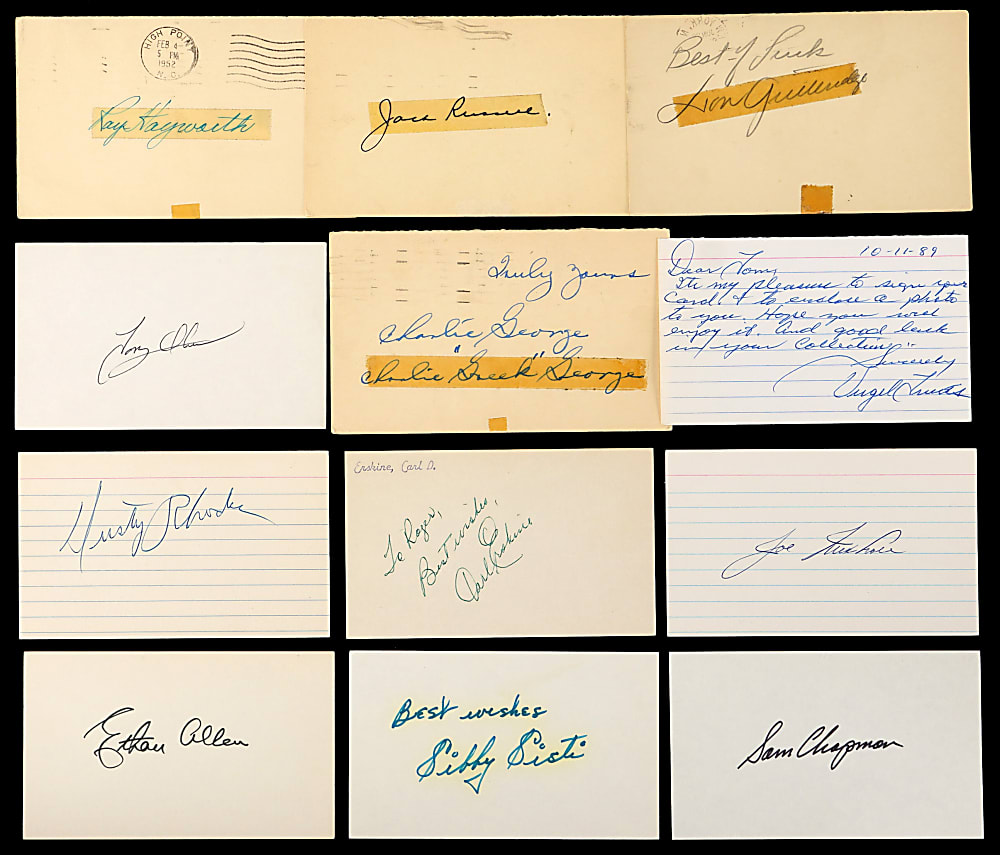 HIGH POINT
FEB 4
5 PM
1952
N.C.
Ray Hayworth
Jack Russell.
Best of Luck
Don Gutteridge
Tony Oliva
Truly yours
Charlie George
Charlie "Greek" George
10-11-89
Dear Tom,
Its my pleasure to sign your
Card. & to enclose a photo
to you. Hope you will
enjoy it. And good luck
in your Collecting.
Sincerely
Virgil Trucks
Dusty Rhodes
Erskine, Carl D.
To Roger,
Best wishes,
Carl Erskine
Joe
Ethan Allen
Best wishes
Sibby Sisti
Sam Chapman